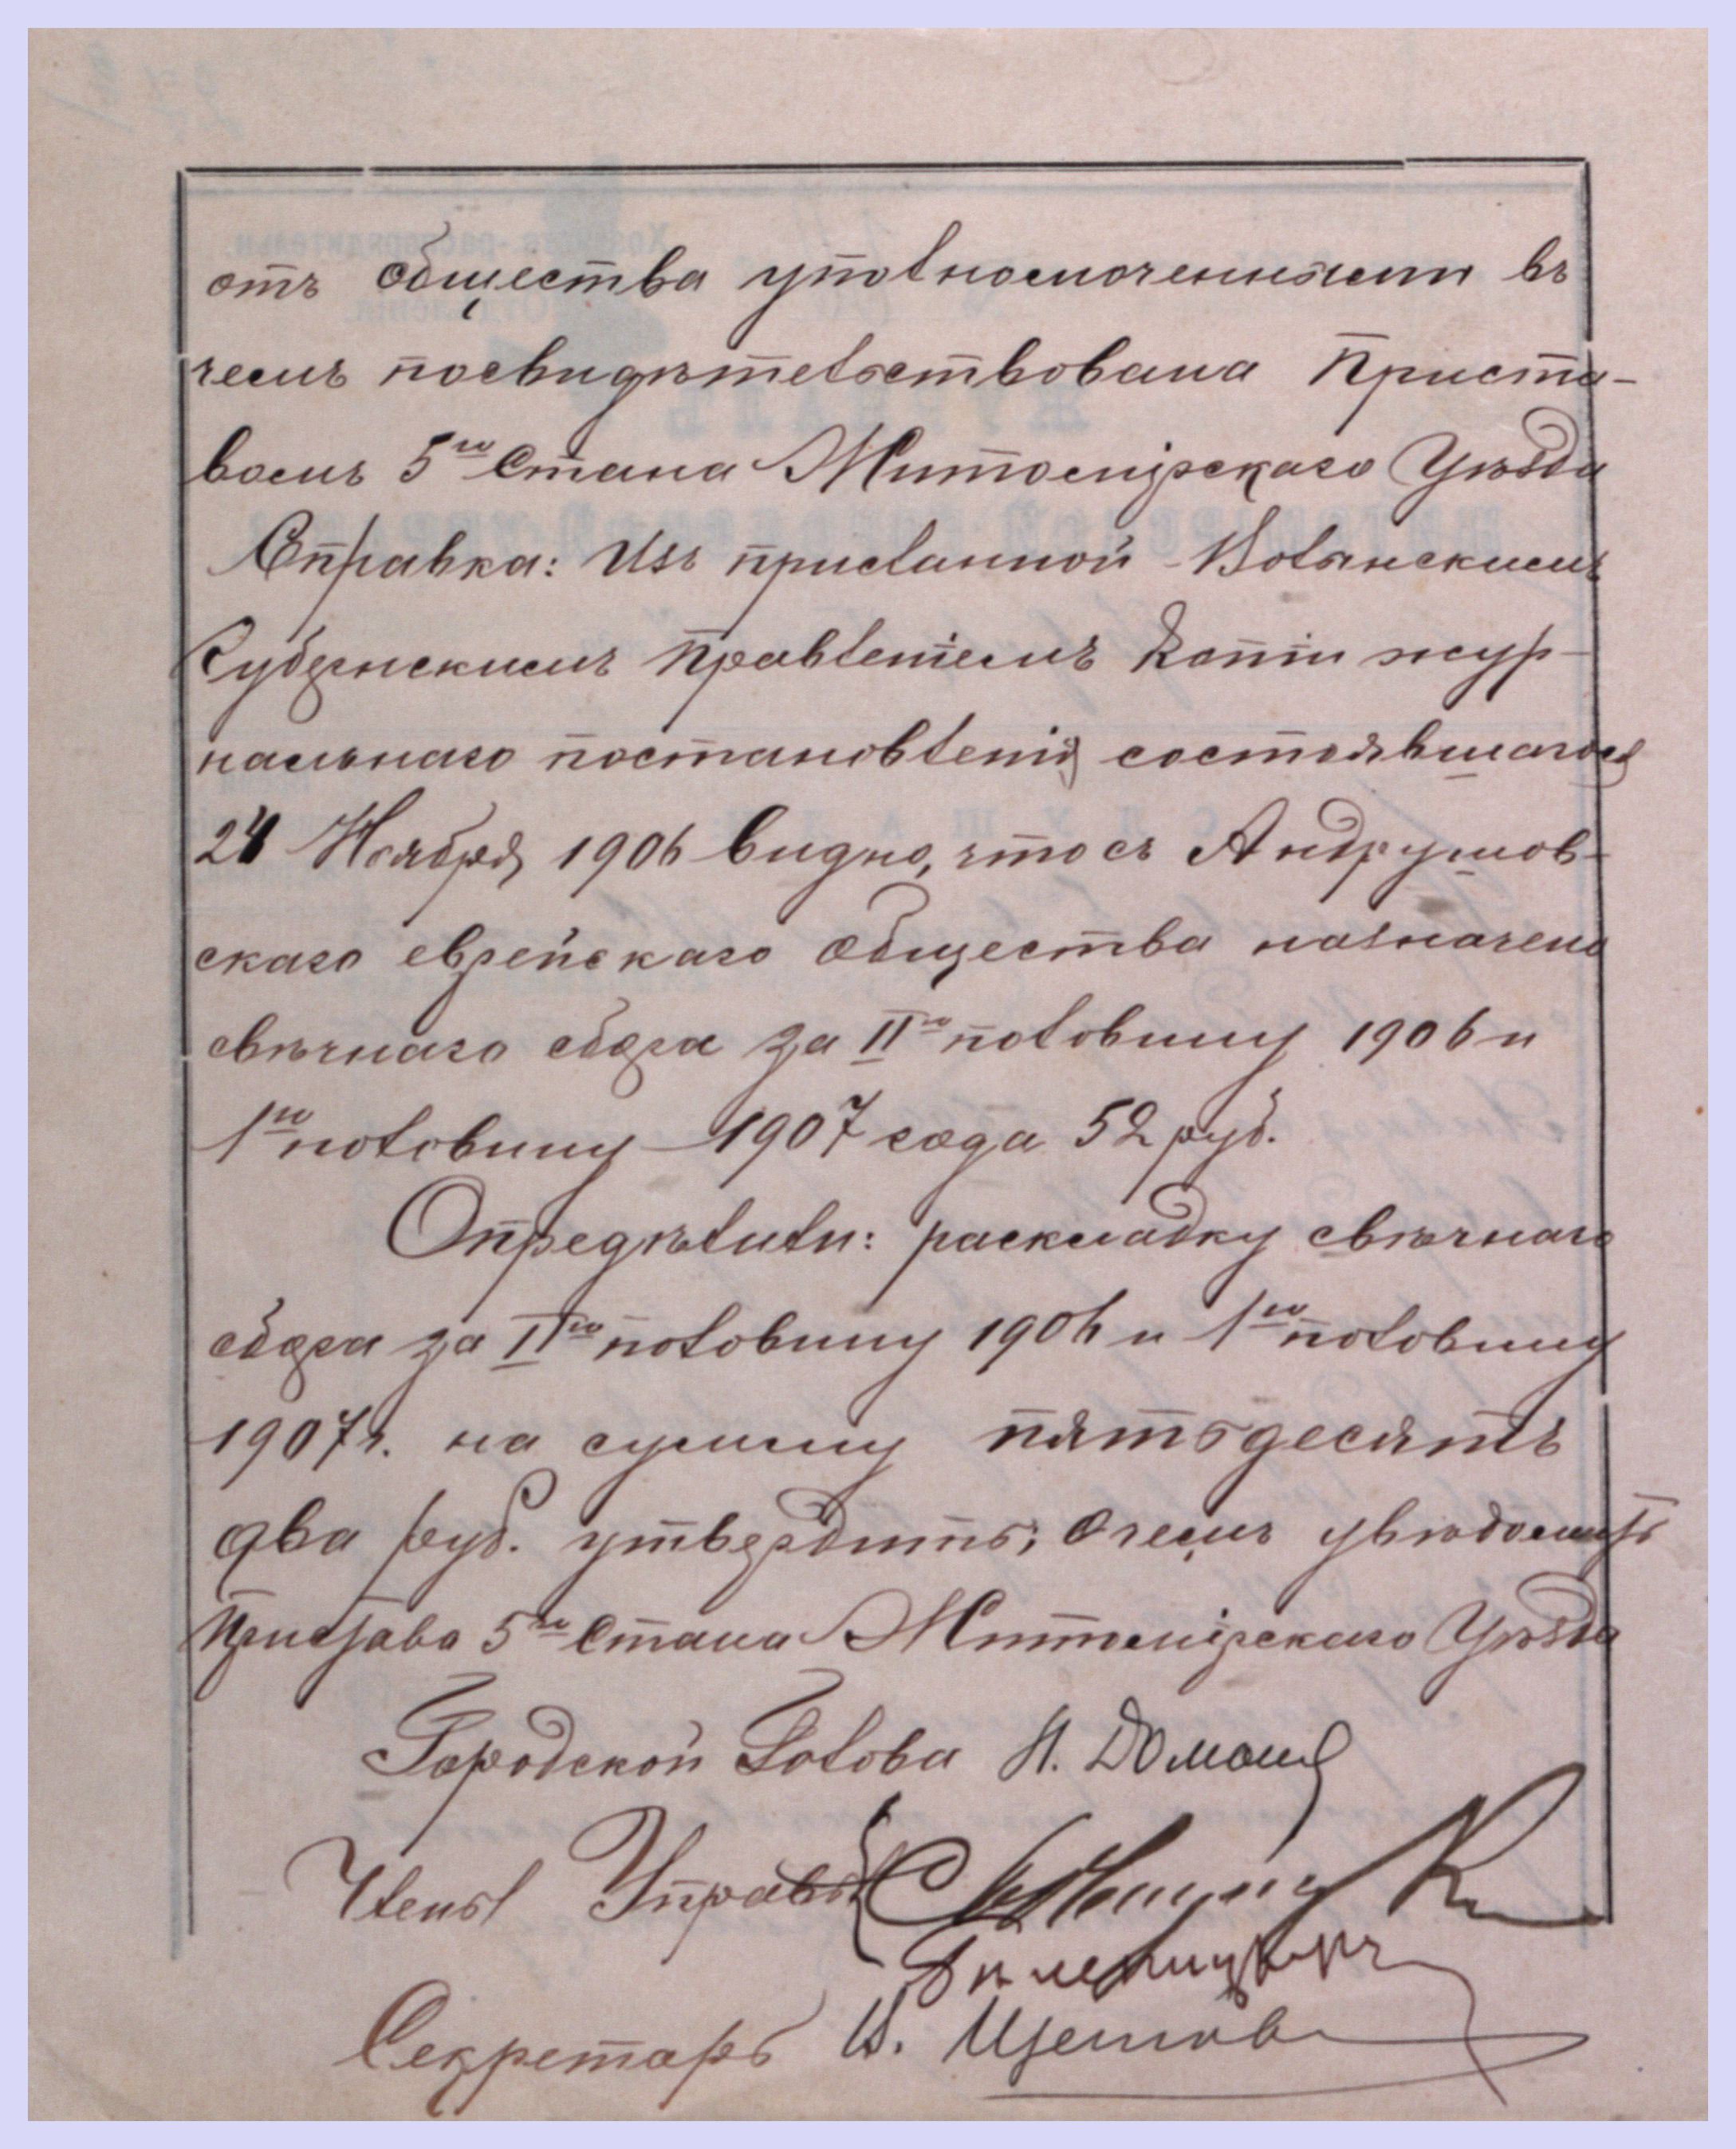 отъ общества уполномоченными въ
чемъ посвидѣтельствована Приста-
вомъ 5го Стана Житомірскаго Уѣзда
Справка: Изъ присланной Волынскимъ
Губернскимъ Правленіемъ Копіи жур-
нальнаго постановленія состоявшагося
24 Ноября 1906 видно, что съ Андрушов-
скаго еврейскаго общества назначено
свѣчнаго сбора за IIю половину 1906 и
1ю половину 1907 года 52 руб.
Опредѣлили: раскладку свѣчнаго
сбора за IIю половину 1906 и 1ю половину
1907 г. на сумму пятьдесятъ
два руб. утвердить; О чемъ увѣдомить
Пристава 5го Стана Житомірскаго Уѣзда
Городской Голова
Члены Управы
Секретарь